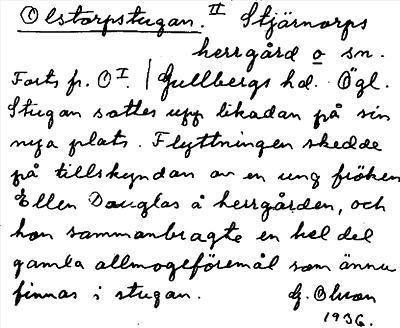 Olstorpstugan. II Stjärnorps
herrgård o sn.
Forts fr. O I. / Gullbergs hd. Ögl.
Stugan sattes upp likadan på sin
nya plats. Flyttningen skedde
på tillskyndan av en ung fröken
Ellen Douglas å herrgården, och
hon sammanbragte en hel del
gamla allmogeföremål som ännu
finnas i stugan. G. Olson
1936.